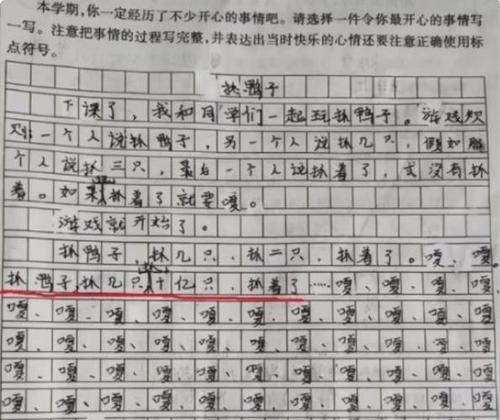 本学期,你一定经历了不少开心的事情吧。请选择一件令你最开心的事情写
一写。注意把事情的过程写完整,并表达出当时快乐的心情还要注意正确使用标
点符号。
抓鸭子
下课了,我和同学们一起玩抓鸭子。游戏规
则:一个人说抓鸭子,另一个人说抓几只,假如
个人说抓三只,最后一个人说抓着了,或没有抓
着。如果抓着了就要嘎。
游戏就开始了。
抓鸭子,抓几只,抓二只,抓着了。嘎、嘎。
抓鸭子,抓几只,十亿只,抓着了……嘎、嘎、嘎、
嘎、嘎、嘎、嘎、嘎、嘎、嘎、嘎、嘎、
嘎、嘎、嘎、嘎、嘎、嘎、嘎、嘎、嘎、
嘎、嘎、嘎、嘎、嘎、嘎、嘎、嘎、嘎、
嘎、嘎、嘎、嘎、嘎、嘎、嘎、嘎、嘎、